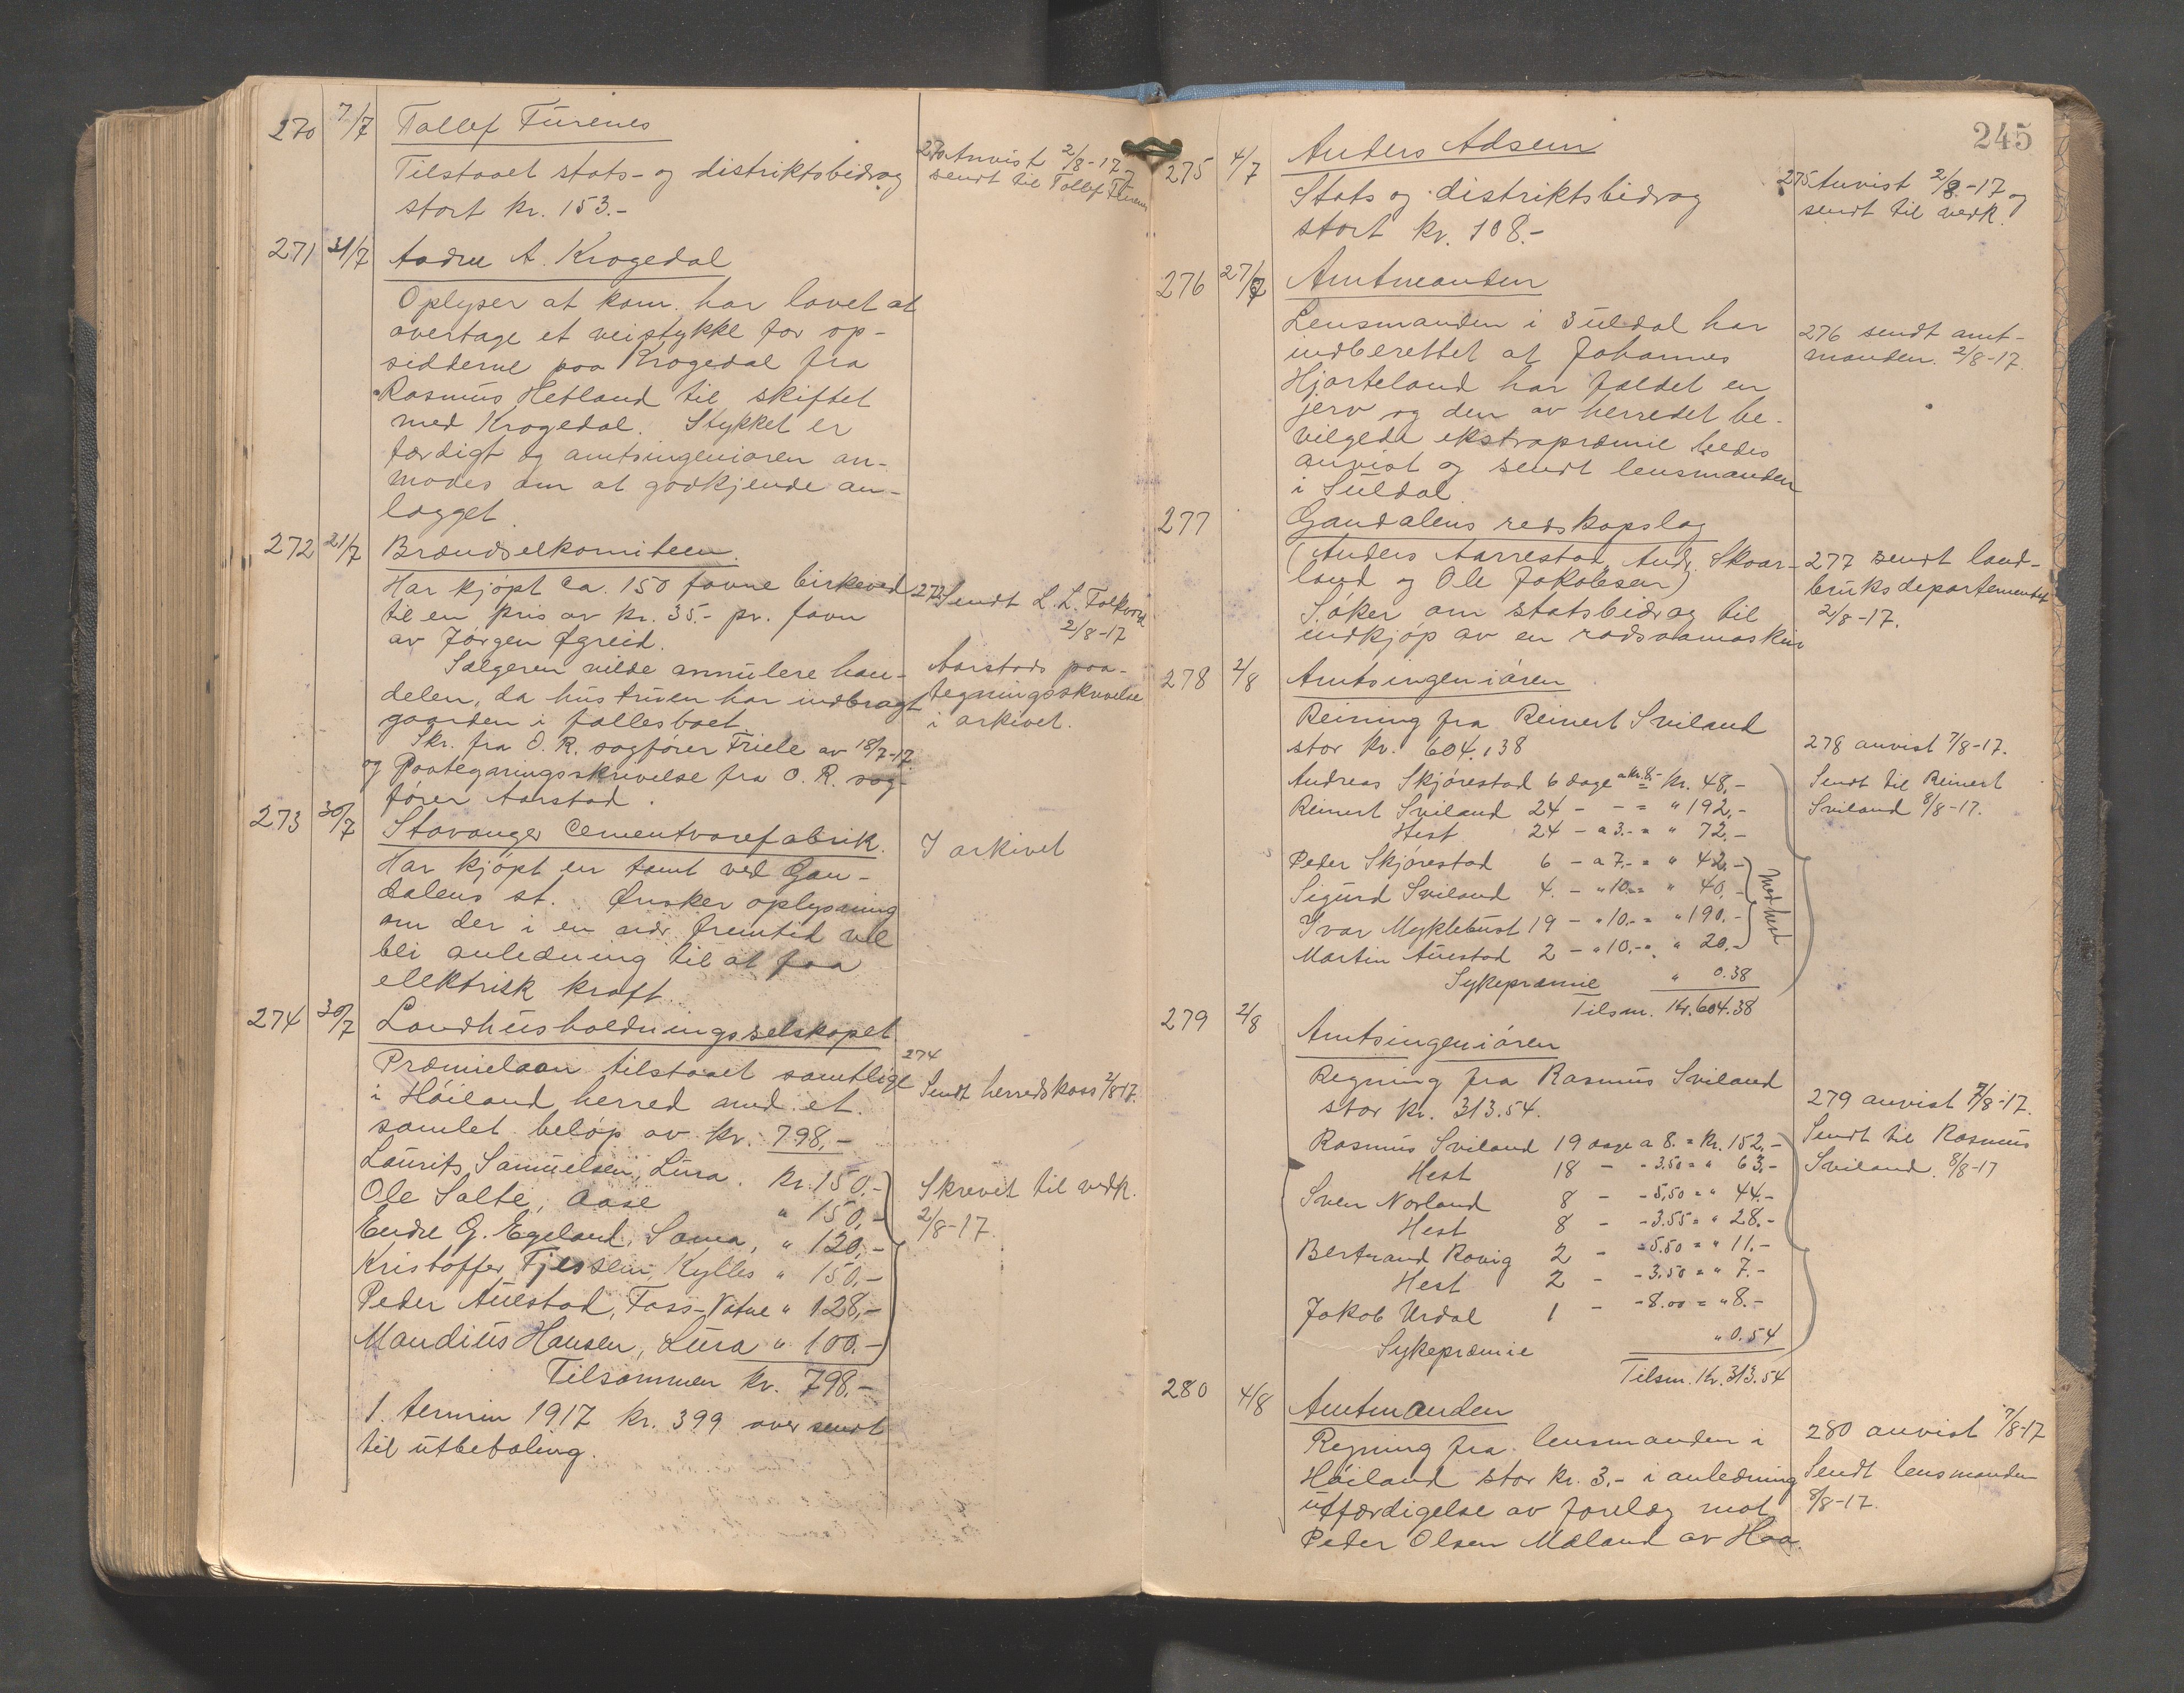 270 7/7 Tallef Furenes
Tilstaaet stats- og distriktsbidrag
stort kr. 153.-
270 Anvist 2/8-17 og
sendt til Tallef Furenes
271 31/7 Andreu A. Krogedal
Oplyser at kom. har lovet at
overtage et veistykke for op-
sidderne paa Krogedal fra
Rasmus Hetland til skiftet
med Krogedal. Stykket er
færdigt og amtsingeniøren an-
modes om at godkjende an-
lægget.
272 21/7 Brændselkomiteen.
Har kjøpt ca. 150 favne birkeved
til en pris av kr. 35.- pr. favn
av Jørgen Øgreid.
Sælgeren vilde annulere han-
delen, da hustruen har indbragt
gaarden i fællesboet
Skr. fra O. R. sagfører Friele av 18/7-17.
og Paategningsskrivelse fra O. R. sag-
fører Aarstad.
272 Sendt L. L. Folkvord
2/8-17
Aarstads paa-
tegningsskrivelse
i arkivet.
273 30/7 Stavanger Cementvarefabrik.
Har kjøpt en tomt ved Gan-
dalens st. Ønsker oplysning
om der i en nær fremtid vil
bli anledning til at faa
elektrisk kraft.
I arkivet
274 30/7 Landhusholdningsselskapet
Præmielaan tilstaaet samtlige
i Høiland herred med et
samlet beløp av kr. 798,-
Laurits Samuelsen, Lura. kr. 150,-
Ole Salte, Aase " 150,-
Endre G. Egeland, Soma, " 120,-
Kristoffer Tjessem, Kylles " 150,-
Peder Auestad, Foss-Vatne " 128,-
Mandius Hansen, Lura " 100.-
Tilsammen kr. 798.-
1. termin 1917 kr. 399 over sendt
til utbetaling.
274
Sendt herredskass 2/8-17.
Skrevet til vedk.
2/8-17.
245
275 4/7 Anders Adsem
Stats og distriktsbidrag
stort kr. 108.-
275 Anvist 2/8-17 og
sendt til vedk.
276 27/7 Amtmanden
Lensmanden i Suldal har
indberettet at Johannes
Hjorteland har fældet en
jerv og den av herredet be-
vilgede ekstrapræmie bedes
anvist og sendt lensmanden
i Suldal.
276 sendt amt-
manden. 2/8-17.
277 Gandalens redskapslag
(Anders Aarrestad, Andr. Skaar-
land og Ole Jakobsen)
Søker om statsbidrag til
indkjøp av en radsaamaskin
277 sendt land-
bruksdepartementet
2/8-17.
278 2/8 Amtsingeniøren
Reining fra Reinert Sviland
stor kr. 604,38
Andreas Skjørestad 6 dage a kr. 8.- kr. 48,-
Reinert Sviland 24 - - = " 192,-
Hest 24 - a 3.- = " 72.-
Peder Skjørestad 6 - a 7.- = " 42,-
Sigurd Sviland 4. - " 10.- = " 40,-
Ivar Myklebust 19 - " 10.- = " 190.-
Martin Auestad 2 - " 10.- = " 20.-
Med hest
Sykepræmie " 0.38
Tilsm. Kr. 604.38
278 anvist 7/8-17.
Sendt til Reinert
Sviland 8/8-17.
279 2/8 Amtsingeniøren
Regning fra Rasmus Sviland
stor kr. 313.54.
Rasmus Sviland 19 dage a 8. = kr. 152,-
Hest 18 - - 3.50 = " 63,-
Sven Norland 8 - - 5,50 = " 44.-
Hest 8 - - 3.55 = " 28.-
Bertrand Rovig 2 - - 5.50 = " 11.-
Hest 2 - - 3.50 = " 7.-
Jakob Urdal 1 - - 8.00 = " 8.-
Sykepræmie " 0.54
Tilsm. Kr. 313.54
279 anvist 7/8-17.
Sendt til Rasmus
Sviland. 8/8-17
280 4/8 Amtmanden
Regning fra lensmanden i
Høiland stor kr. 3.- i anledning
utfærdigelse av forelæg mot
Peder Olsen Maland av Haa.
280 anvist 7/8-17
Sendt lensmanden
8/8-17.